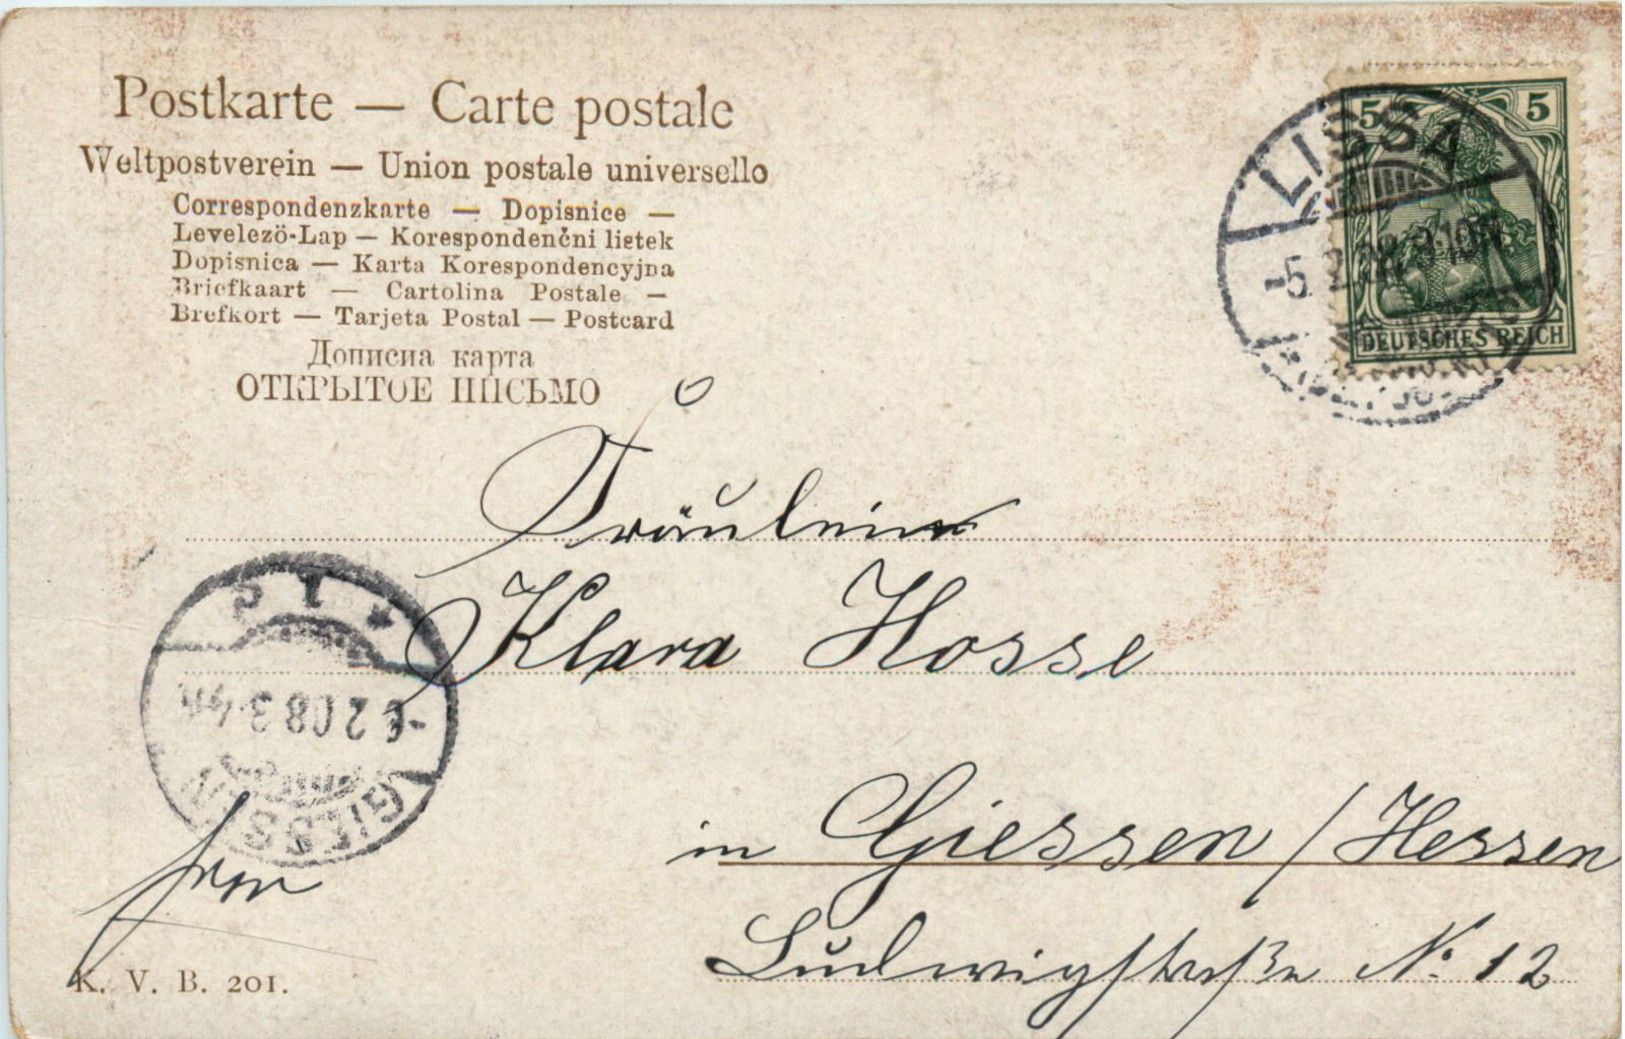 Postkarte — Carte postale
Weltpostverein — Union postale universelle
Correspondenzkarte — Dopisnice —
Levelezö-Lap — Korespondenčni listek
Dopisnica — Karta Korespondencyjna
Briefkaart — Cartolina Postale —
Brefkort — Tarjeta Postal — Postcard
Дописна карта
ОТКРЫТОЕ ПИСЬМО
5 5
DEUTSCHES REICH
LISSA
-5.2.08.9-10N
Fräulein
Klara Hosse
in Giessen / Hessen
Ludwigstraße No 12
GIESSEN
-6.2.08.3-4N
frei
K. V. B. 201.